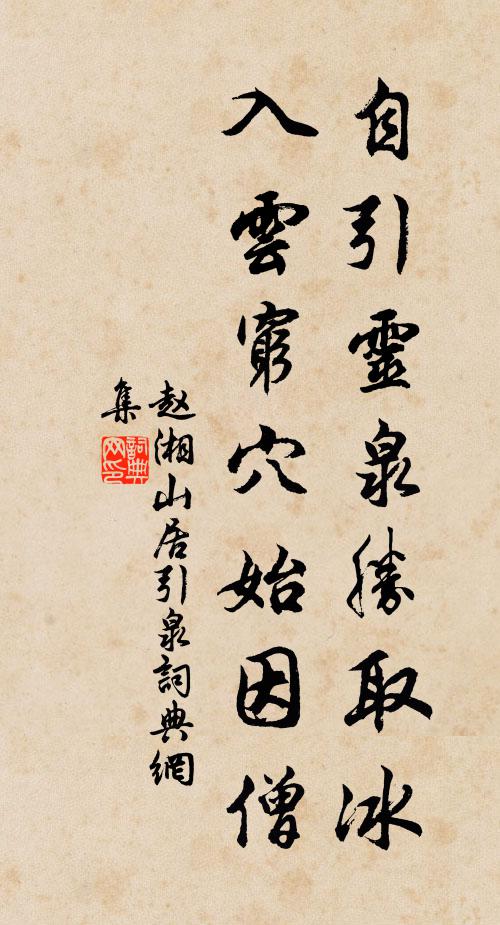 自引靈泉勝取冰
入雲窮穴始因僧
赵湘山居引泉詞典網
集
詞典網印